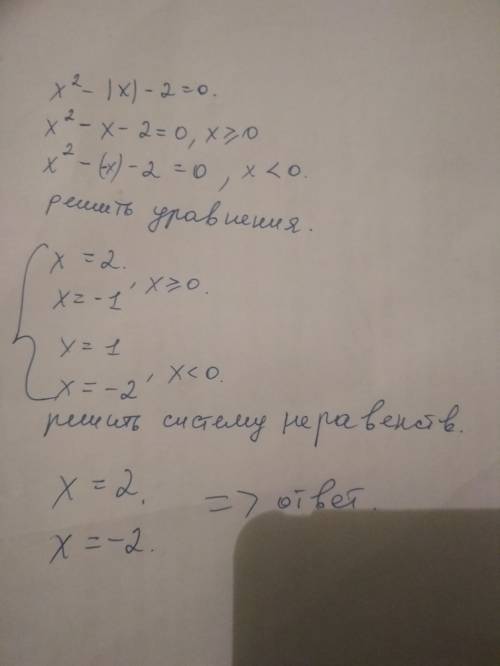 x² - |x| - 2 = 0.
x² - x - 2 = 0, x ≥ 0
x² - (-x) - 2 = 0, x < 0.
решить уравнения.
x = 2.
x = -1, x ≥ 0.
x = 1
x = -2, x < 0.
решить систему неравенств.
x = 2.
=> ответ.
x = -2.